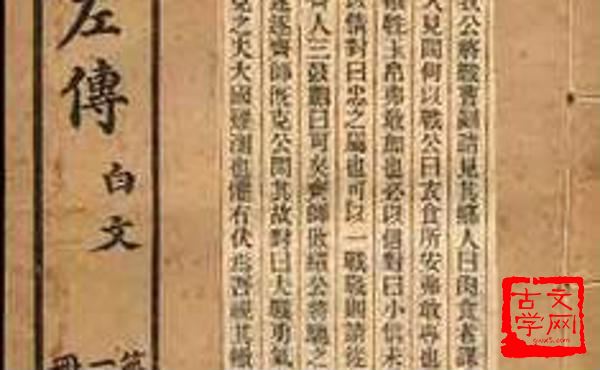 我公將戰曹劌請見其鄉人曰肉食者謀
入見問何以戰公曰衣食所安弗敢專也
犧牲玉帛弗敢加也必以信對曰小信未
以情對曰忠之屬也可以一戰戰則請從
齊人三鼓劌曰可矣齊師敗績公將馳之
遂逐齊師既克公問其故對曰夫戰勇氣
克之夫大國難測也懼有伏焉吾視其轍
左傳
白文
第一冊
古文
学网
gwx5.com